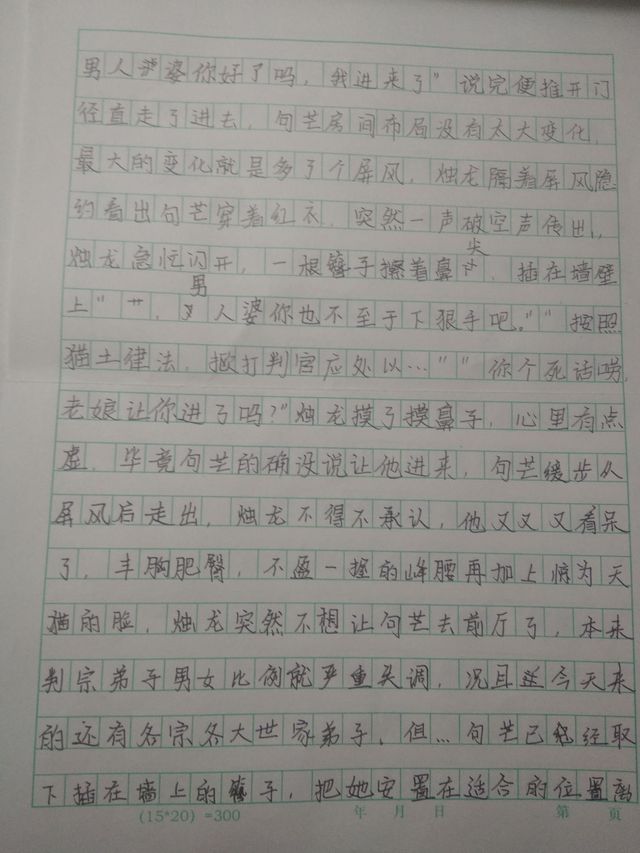 男人婆你好了吗，我进来了”说完便推开门
径直走了进去，句芒房间布局没有太大变化，
最大的变化就是多了个屏风，烛龙隔着屏风隐
约看出句芒穿着红衣，突然一声破空声传出，
烛龙急忙闪开，一根簪子擦着鼻尖，插在墙壁
上“艹，男人婆你也不至于下狠手吧。”“按照
猫土律法，掀打判官应处以…”“你个死话唠，
老娘让你进了吗？”烛龙摸了摸鼻子，心里有点
虚，毕竟句芒的确没说让他进来，句芒缓步从
屏风后走出，烛龙不得不承认，他又又又着呆
了，丰胸肥臀，不盈一握的蜂腰再加上惊为天
猫的脸，烛龙突然不想让句芒去前厅了，本来
判宗弟子男女比例就严重失调，况且这今天来
的还有各宗各大世家弟子，但…句芒已经取
下插在墙上的簪子，把她安置在适合的位置离
(15*20) =300
年 月 日
第 页